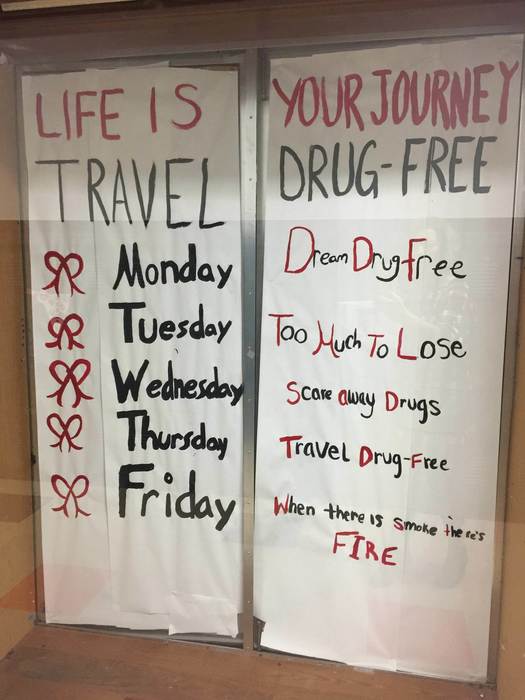 LIFE IS
TRAVEL
Monday
Tuesday
Wednesday
Thursday
Friday
YOUR JOURNEY
DRUG-FREE
Dream Drug Free
Too Much To Lose
Scare away Drugs
Travel Drug-Free
When there is smoke there's
FIRE